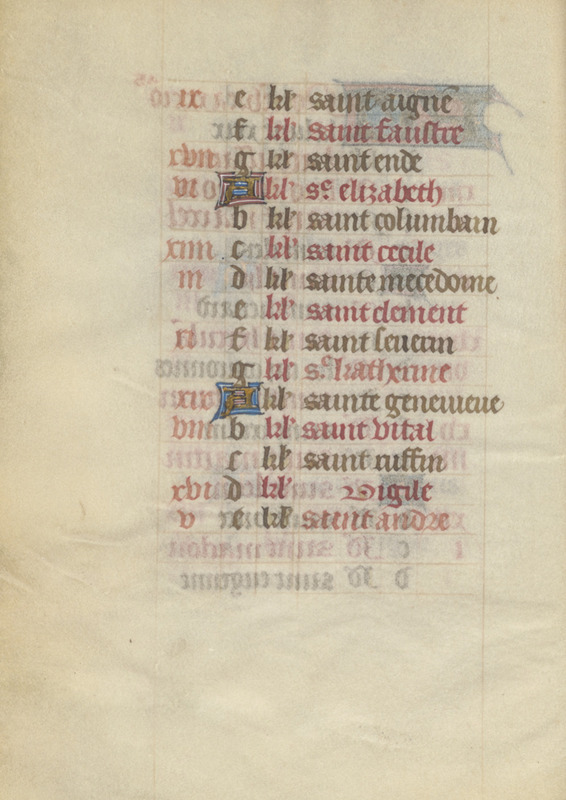 ix e kl' saint aignē
f kl' saint faustre
xvii g kl' saint ende
vi A kl' sᵉ elizabeth
b kl' saint columbain
xiiii c kl' saint cecile
iii d kl' sainte mecedoine
e kl' saint clement
xi f kl' saint severin
g kl' sᵉ katherine
xix A kl' sainte genevieve
viii b kl' saint vital
c kl' saint ruffin
xvi d kl' Vigile
v e kl' saint andre